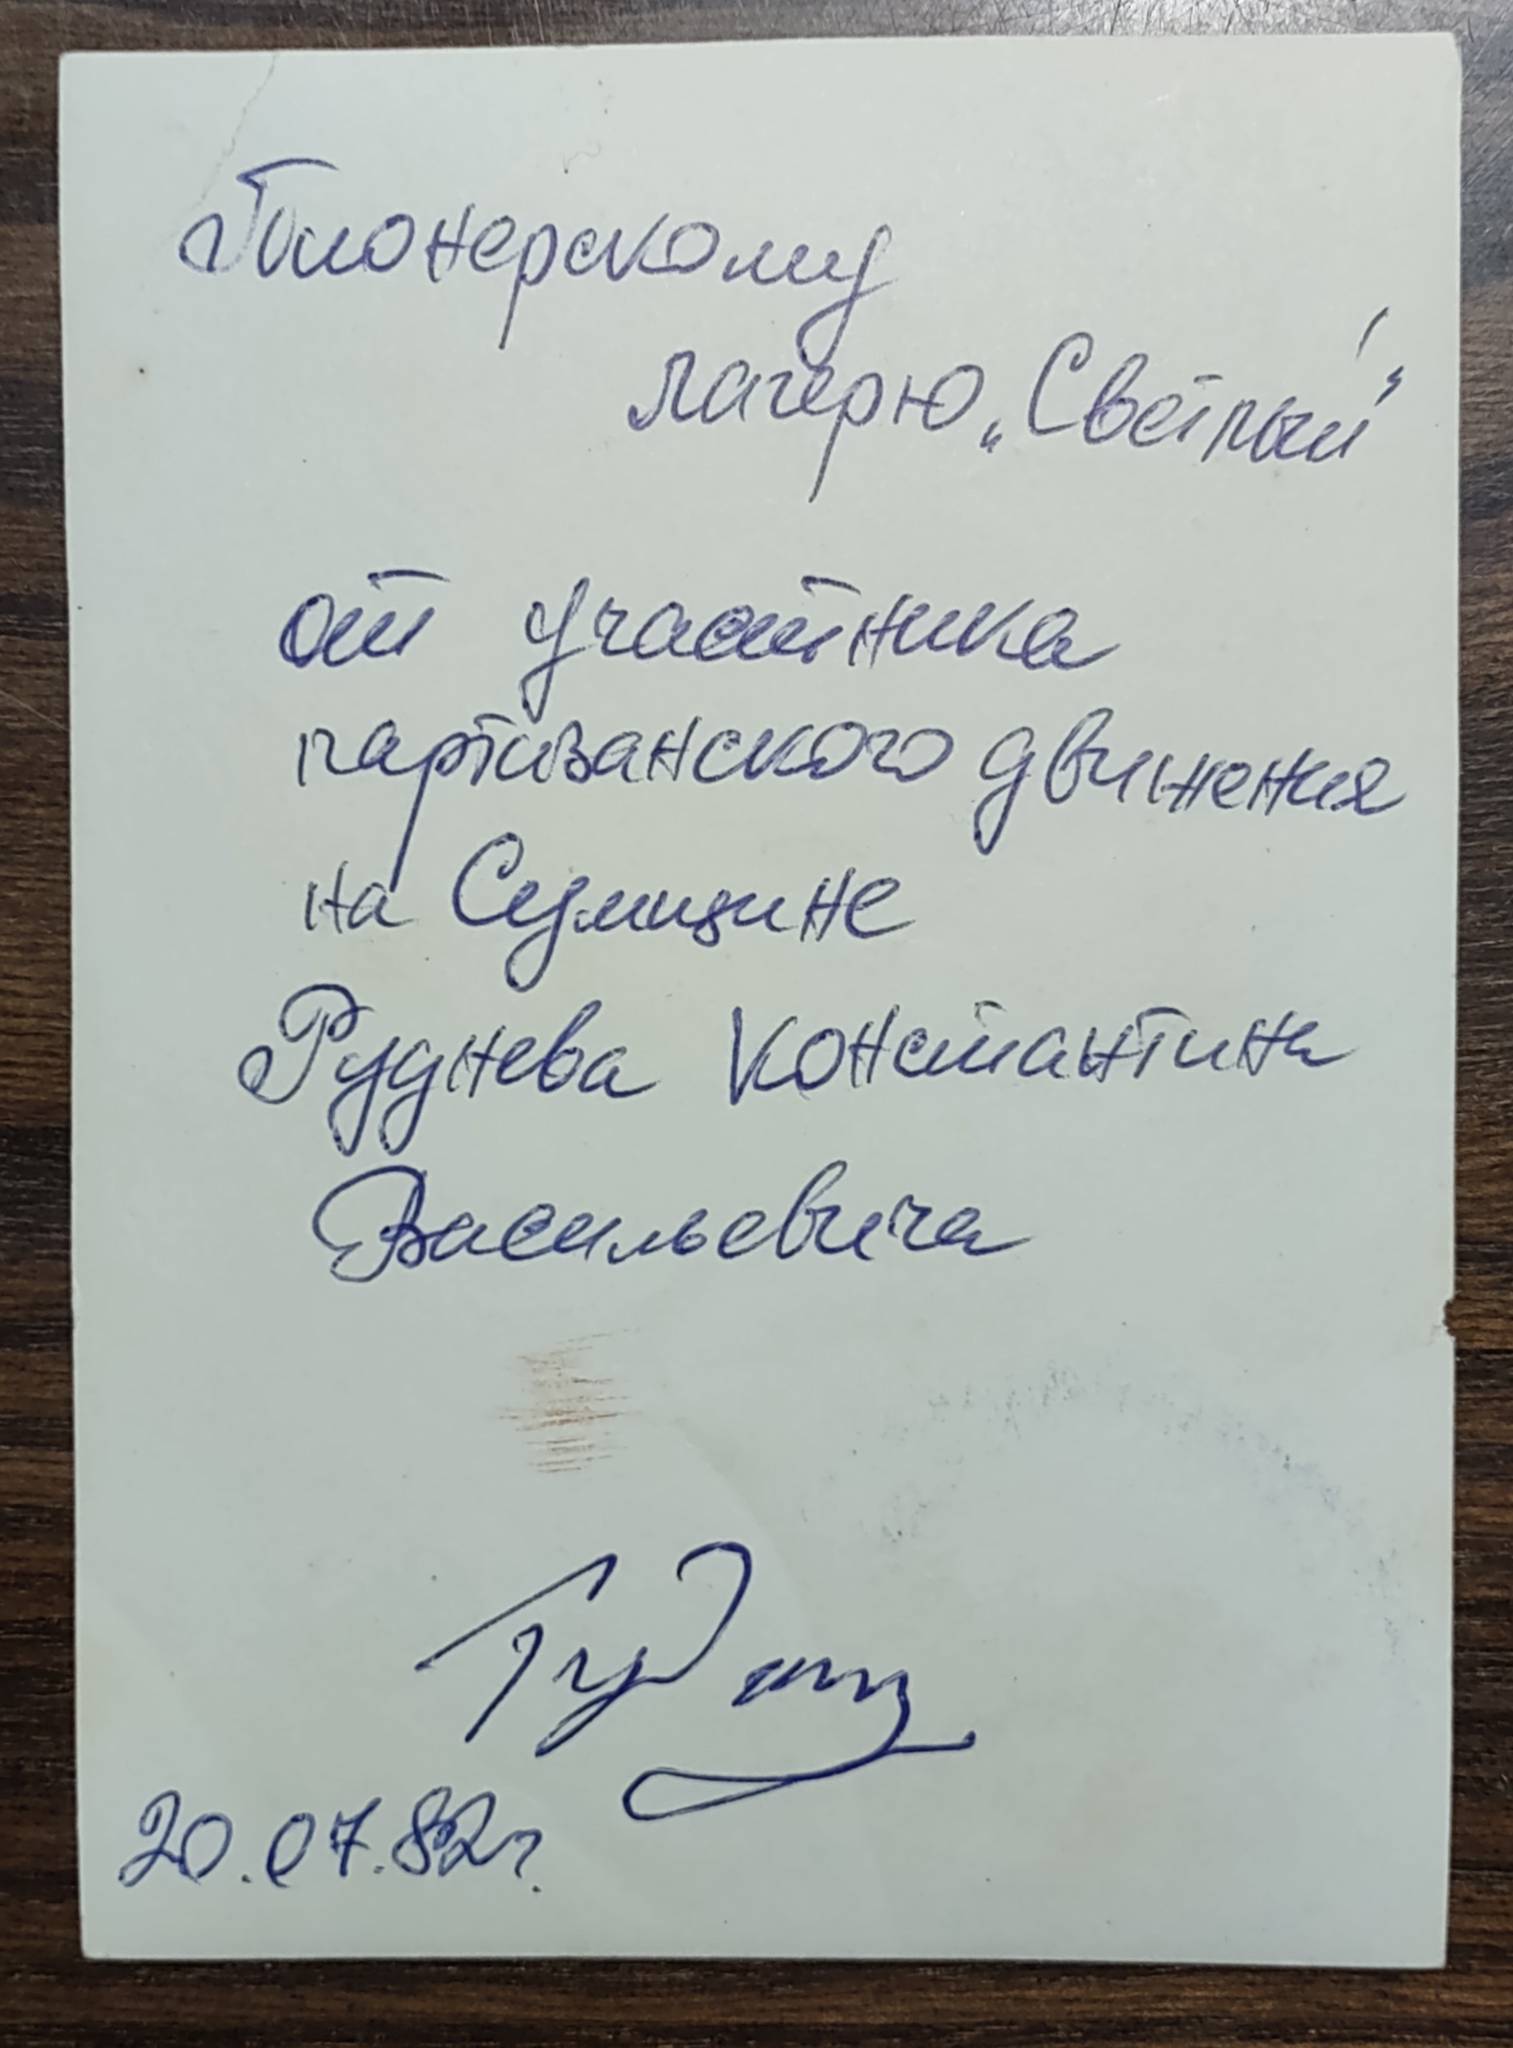 Пионерскому
лагерю „Светлый"
от участника
партизанского движения
на Сумщине
Руднева Константина
Васильевича
20.07.82г.